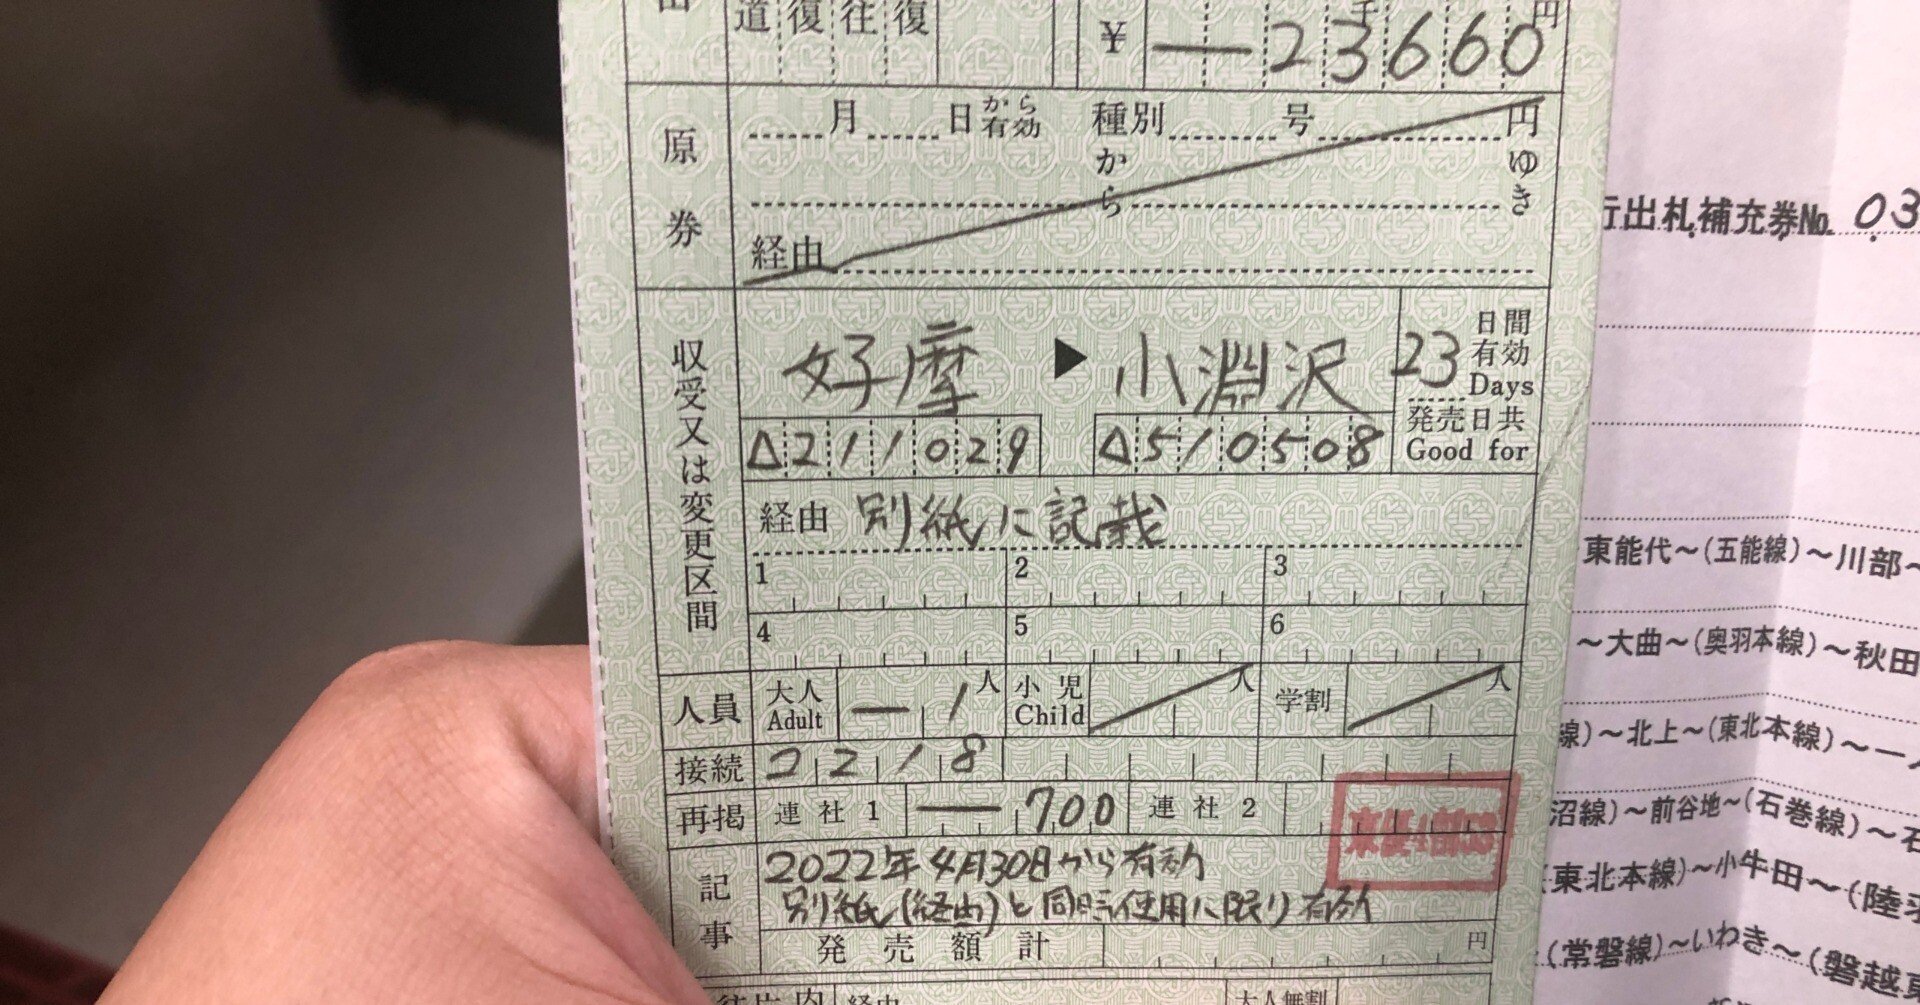 道 復 往 復
千 円
¥ ―23660
原券
月 日から有効 種別 号 円
から ゆき
経由
行出札補充券№ 03
収受又は変更区間
好摩 ▶ 小淵沢
23 日間有効 Days
発売日共 Good for
△211029 △510508
経由 別紙に記載
1 2 3
4 5 6
人員 大人 Adult ― 1 人 小児 Child 人 学割 人
接続 2218
再掲 連社1 ―700 連社2
記事
2022年4月30日から有効
別紙(経由)と同時使用に限り有効
発売額計 円
経由 大人無割
東能代～(五能線)～川部～
～大曲～(奥羽本線)～秋田
線)～北上～(東北本線)～一
沼線)～前谷地～(石巻線)～石
東北本線)～小牛田～(陸羽
(常磐線)～いわき～(磐越東